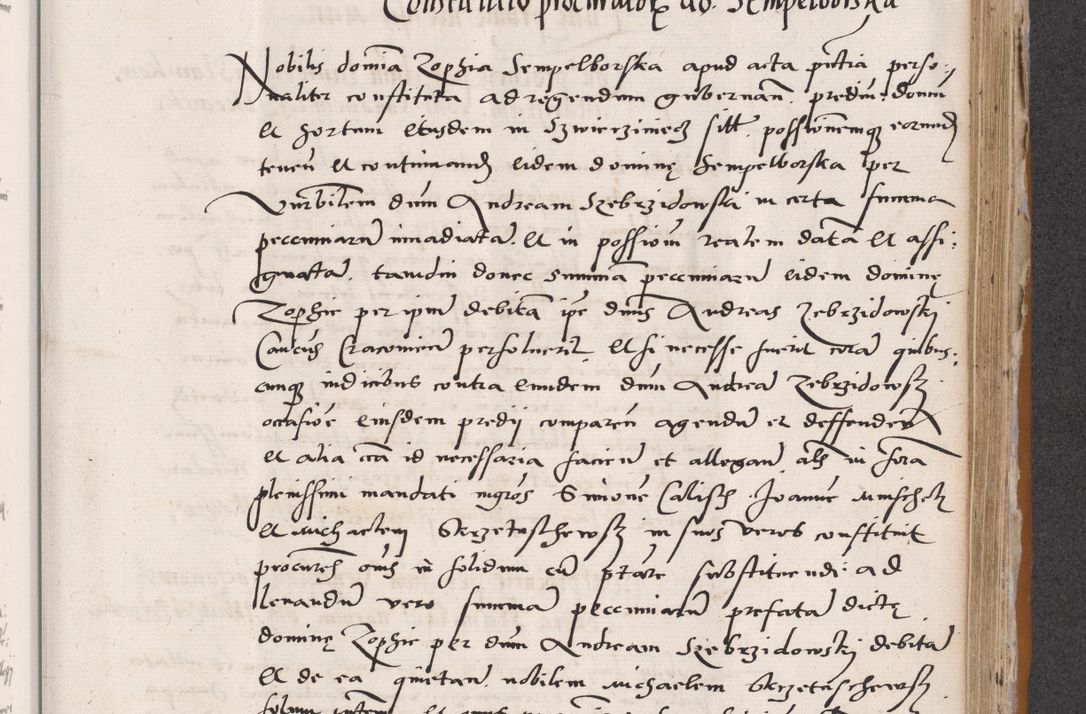 Constitutio procuratorum do. Sempelborska
Nobilis domina Zophia Sempelborska apud acta pntia perso:
naliter constituta ad regendum gubernan. predium, domum
et hortum eiusdem in Szwierziniecz sitt. possionemque eorund
tenen et continuand eidem domine Sempelborska per
Vnrbilem dnm Andream Szebrzidowski in certa summa
pecuniarum inuadiata. et in possionem realem data et assi:
gnata. tamdiu donec summa pecuniarum eidem domine
Zophie per ipm debita ipe dnus Andreas Zebrzidowski
Cancus Cracouien persoluerit et si necesse fuerit cora quibus:
cunque iudicibus contra eundem dnm Andrea Zebrzidowsk
occasione eiusdem predij comparen agendu et deffenden
et alia cca id necessaria facien et allegan als in fora
plenissimi mandati ngros Simone Calisch Joanne Mnischek
et Michaelem Skrzetuschewsk in suos veros constituit
procures oms in solidum cu ptate substituendi. ad
leuandu vero summa pecuniaru prefata dicte
domine Zophie per dnm Andream Szebrzidowski debita
et de ea quietan nobilem Michaelem Skrzetuschewsk